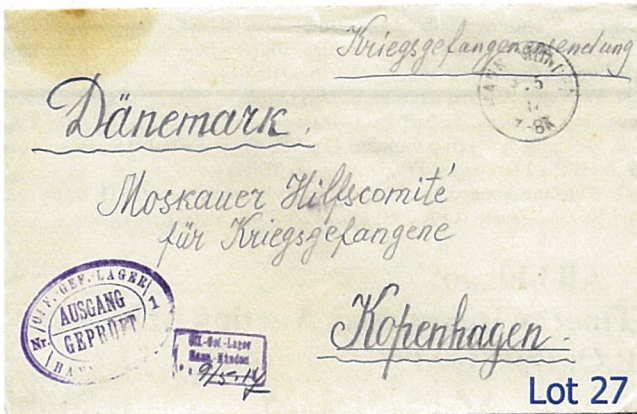 Kriegsgefangenensendung
Dänemark.
Moskauer Hilfscomité
für Kriegsgefangene
Kopenhagen.
OFF.-GEF.-LAGER
AUSGANG
GEPRÜFT
Nr. 1
Off.-Gef.-Lager
Hann.-Münden
9/5.17
7-8N
Lot 27